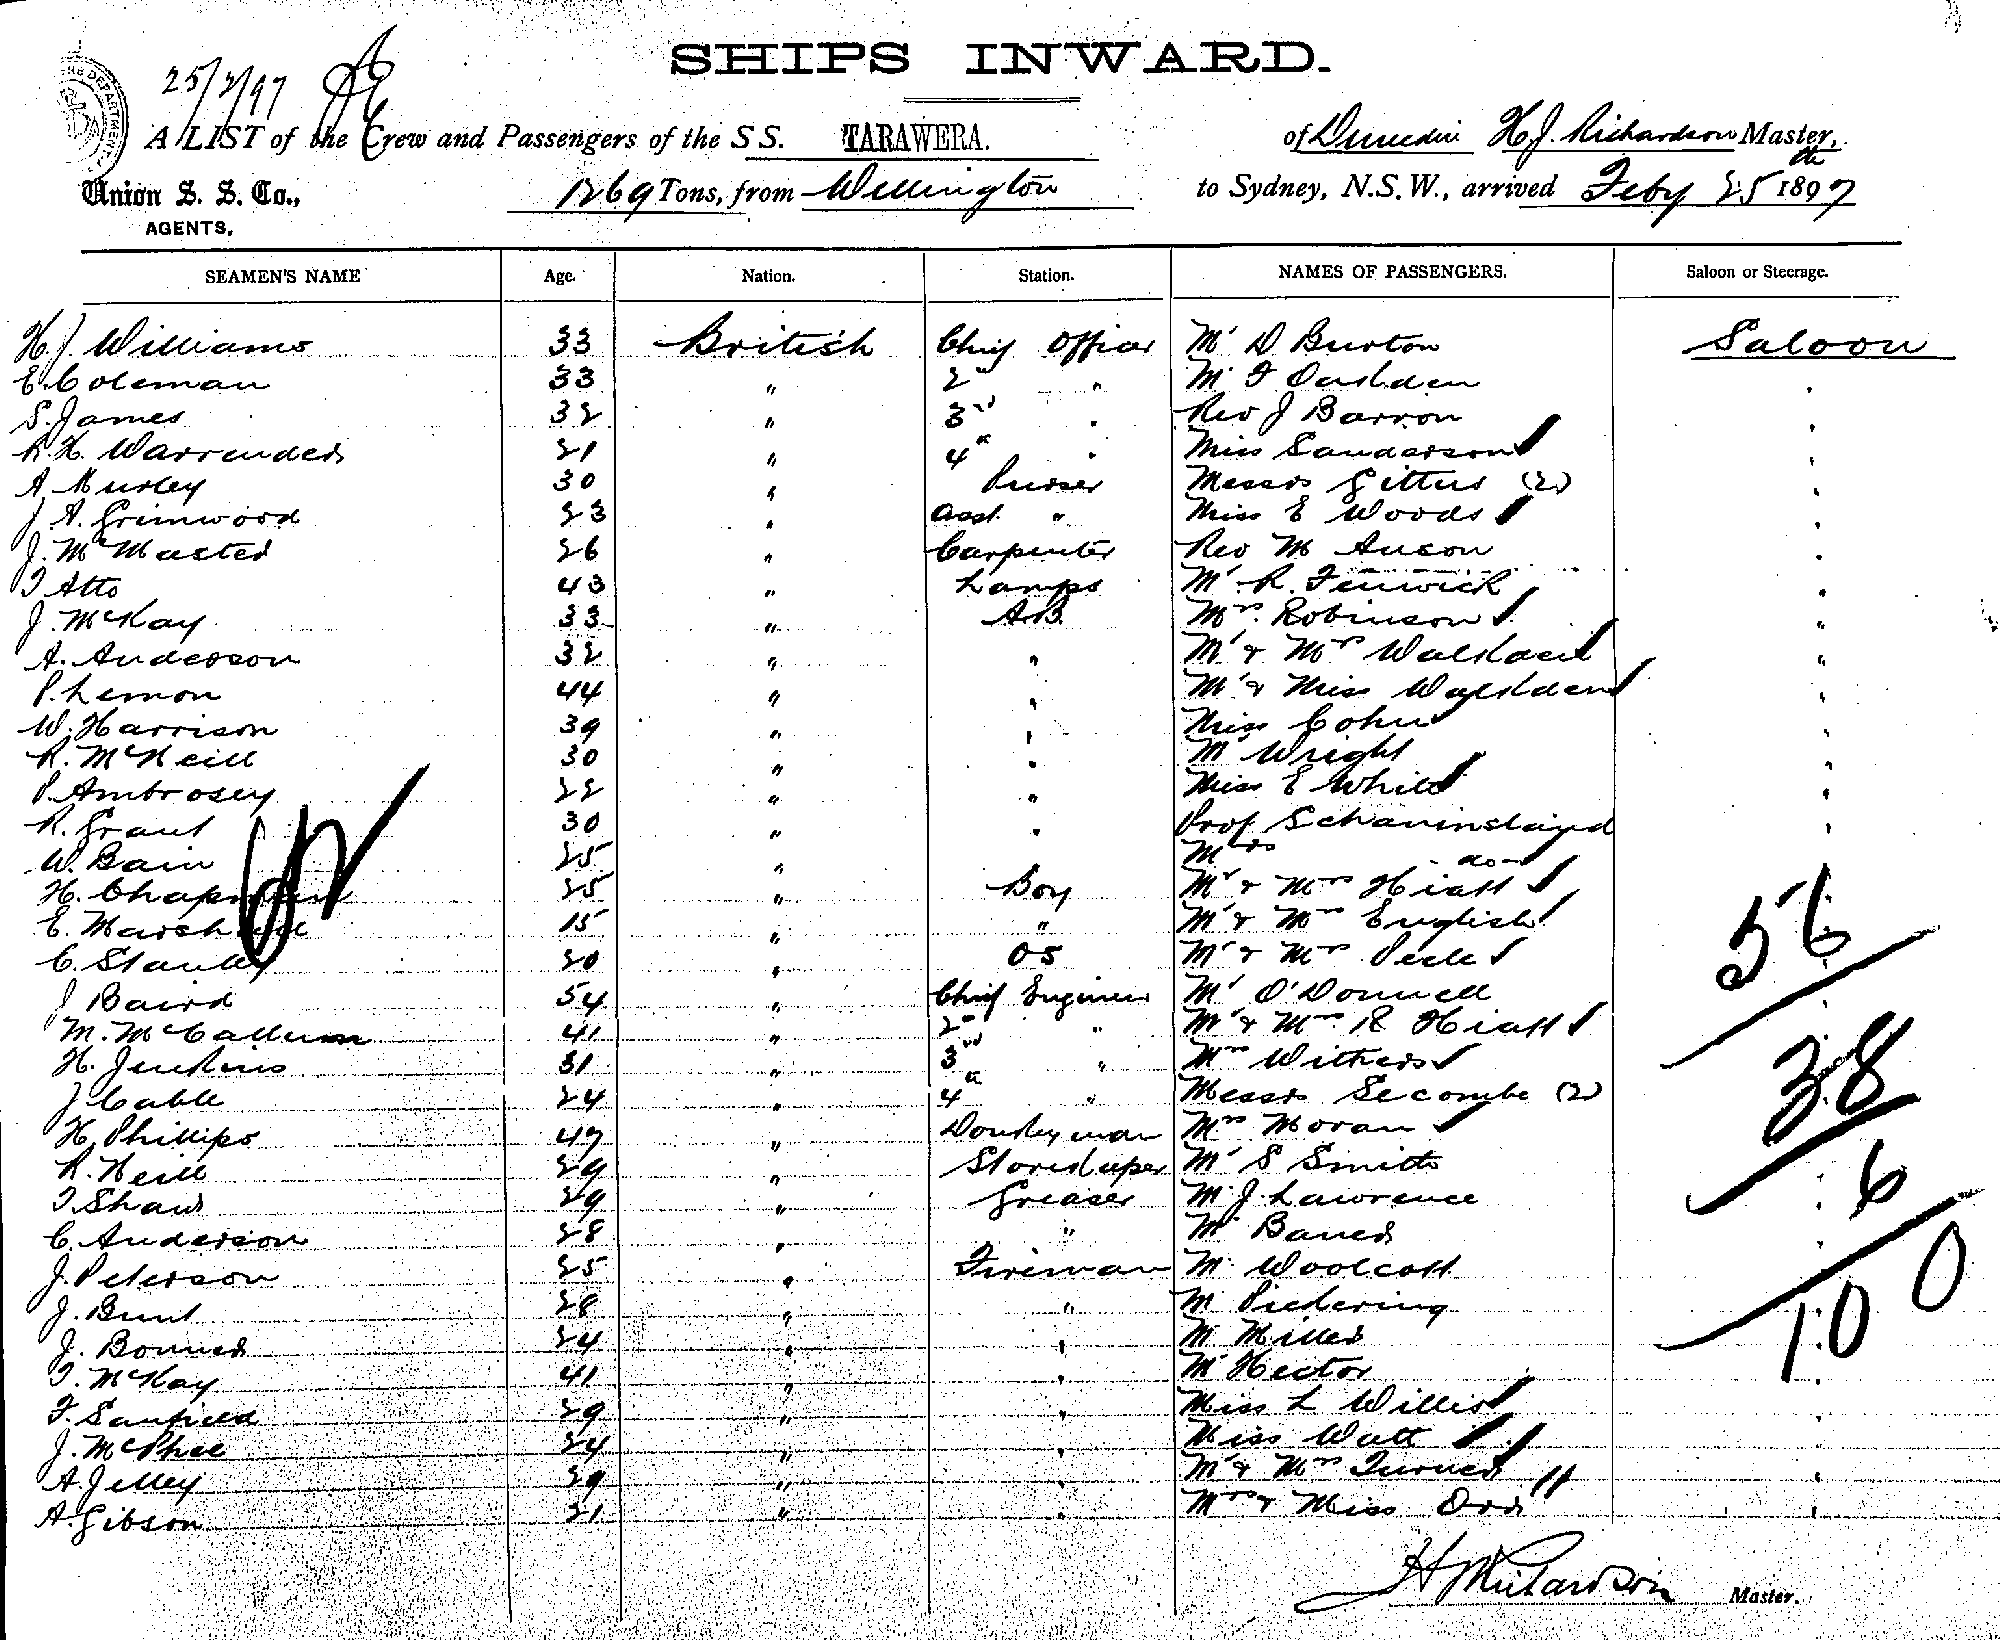 SHIPS INWARD.
25/2/97
A LIST of the Crew and Passengers of the S.S. TARAWERA. of Dunedin H J. Richardson Master,
Union S. S. Co., 1269 Tons, from Wellington to Sydney, N.S.W., arrived Feby 25th 1897
AGENTS.
SEAMEN'S NAME Age. Nation. Station. NAMES OF PASSENGERS. Saloon or Steerage.
H. J. Williams 33 British Chief Officer Mr D Burton Saloon
E. Coleman 33 " 2nd " Mr F "
S. James 32 " 3rd " Rev J Barron "
R. H. Warrender 21 " 4th " Miss Sanderson "
A Hurley 30 " Purser Messrs Gittus (2) "
J A. Grimwood 23 " Asst. " Miss E Woods "
J. McMaster 26 " Carpenter Rev M Anson "
T Atto 43 " Lamps Mr R. Fenwick "
J. McKay 33 " A.B. Mrs Robinson "
A. Anderson 32 " " Mr & Mrs Walkden "
P. Lemon 44 " " Mr & Miss Walkden "
W. Harrison 39 " " Miss Cohn "
R. McNeill 30 " " Mr Wright "
P. Ambrosey 22 " " Miss E White "
R. Grant 30 " " Prof "
W. Bain 25 " Mrs -do-
H. Chapman 25 " Boy Mr & Mrs Hiatt
E. Marshall 15 " " Mr & Mrs English
C. Stanley 20 " OS Mr & Mrs 56
J Baird 54 " Chief Engineer Mr O'Donnell
M. McCallum 41 " 2nd " Mr & Mrs R Hiatt
H. Jenkins 31 " 3rd " Mrs Withers 38
J. Cable 24 " 4th " Messrs Secombe (2)
H. Phillips 47 " Donkeyman Mrs Moran
R. Neill 29 " Storekeeper Mr S Smith 6
T. Shaw 29 " Greaser Mr J. Lawrence
C. Anderson 28 " " Mr
J. Peterson 25 " Fireman Mr Woolcott 100
J. Bunt 28 " " Mr Pickering
J. Bonner 24 " " Mr Miller
T. McKay 41 " " Mr Hector
F. Sanfield 29 " " Miss L Willis "
J. McPhee 24 " " Miss Watt "
A. Jelley 29 " " Mr & Mrs Turner "
A. Gibson 21 " " Mrs & Miss Orr "
H J Richardson Master.